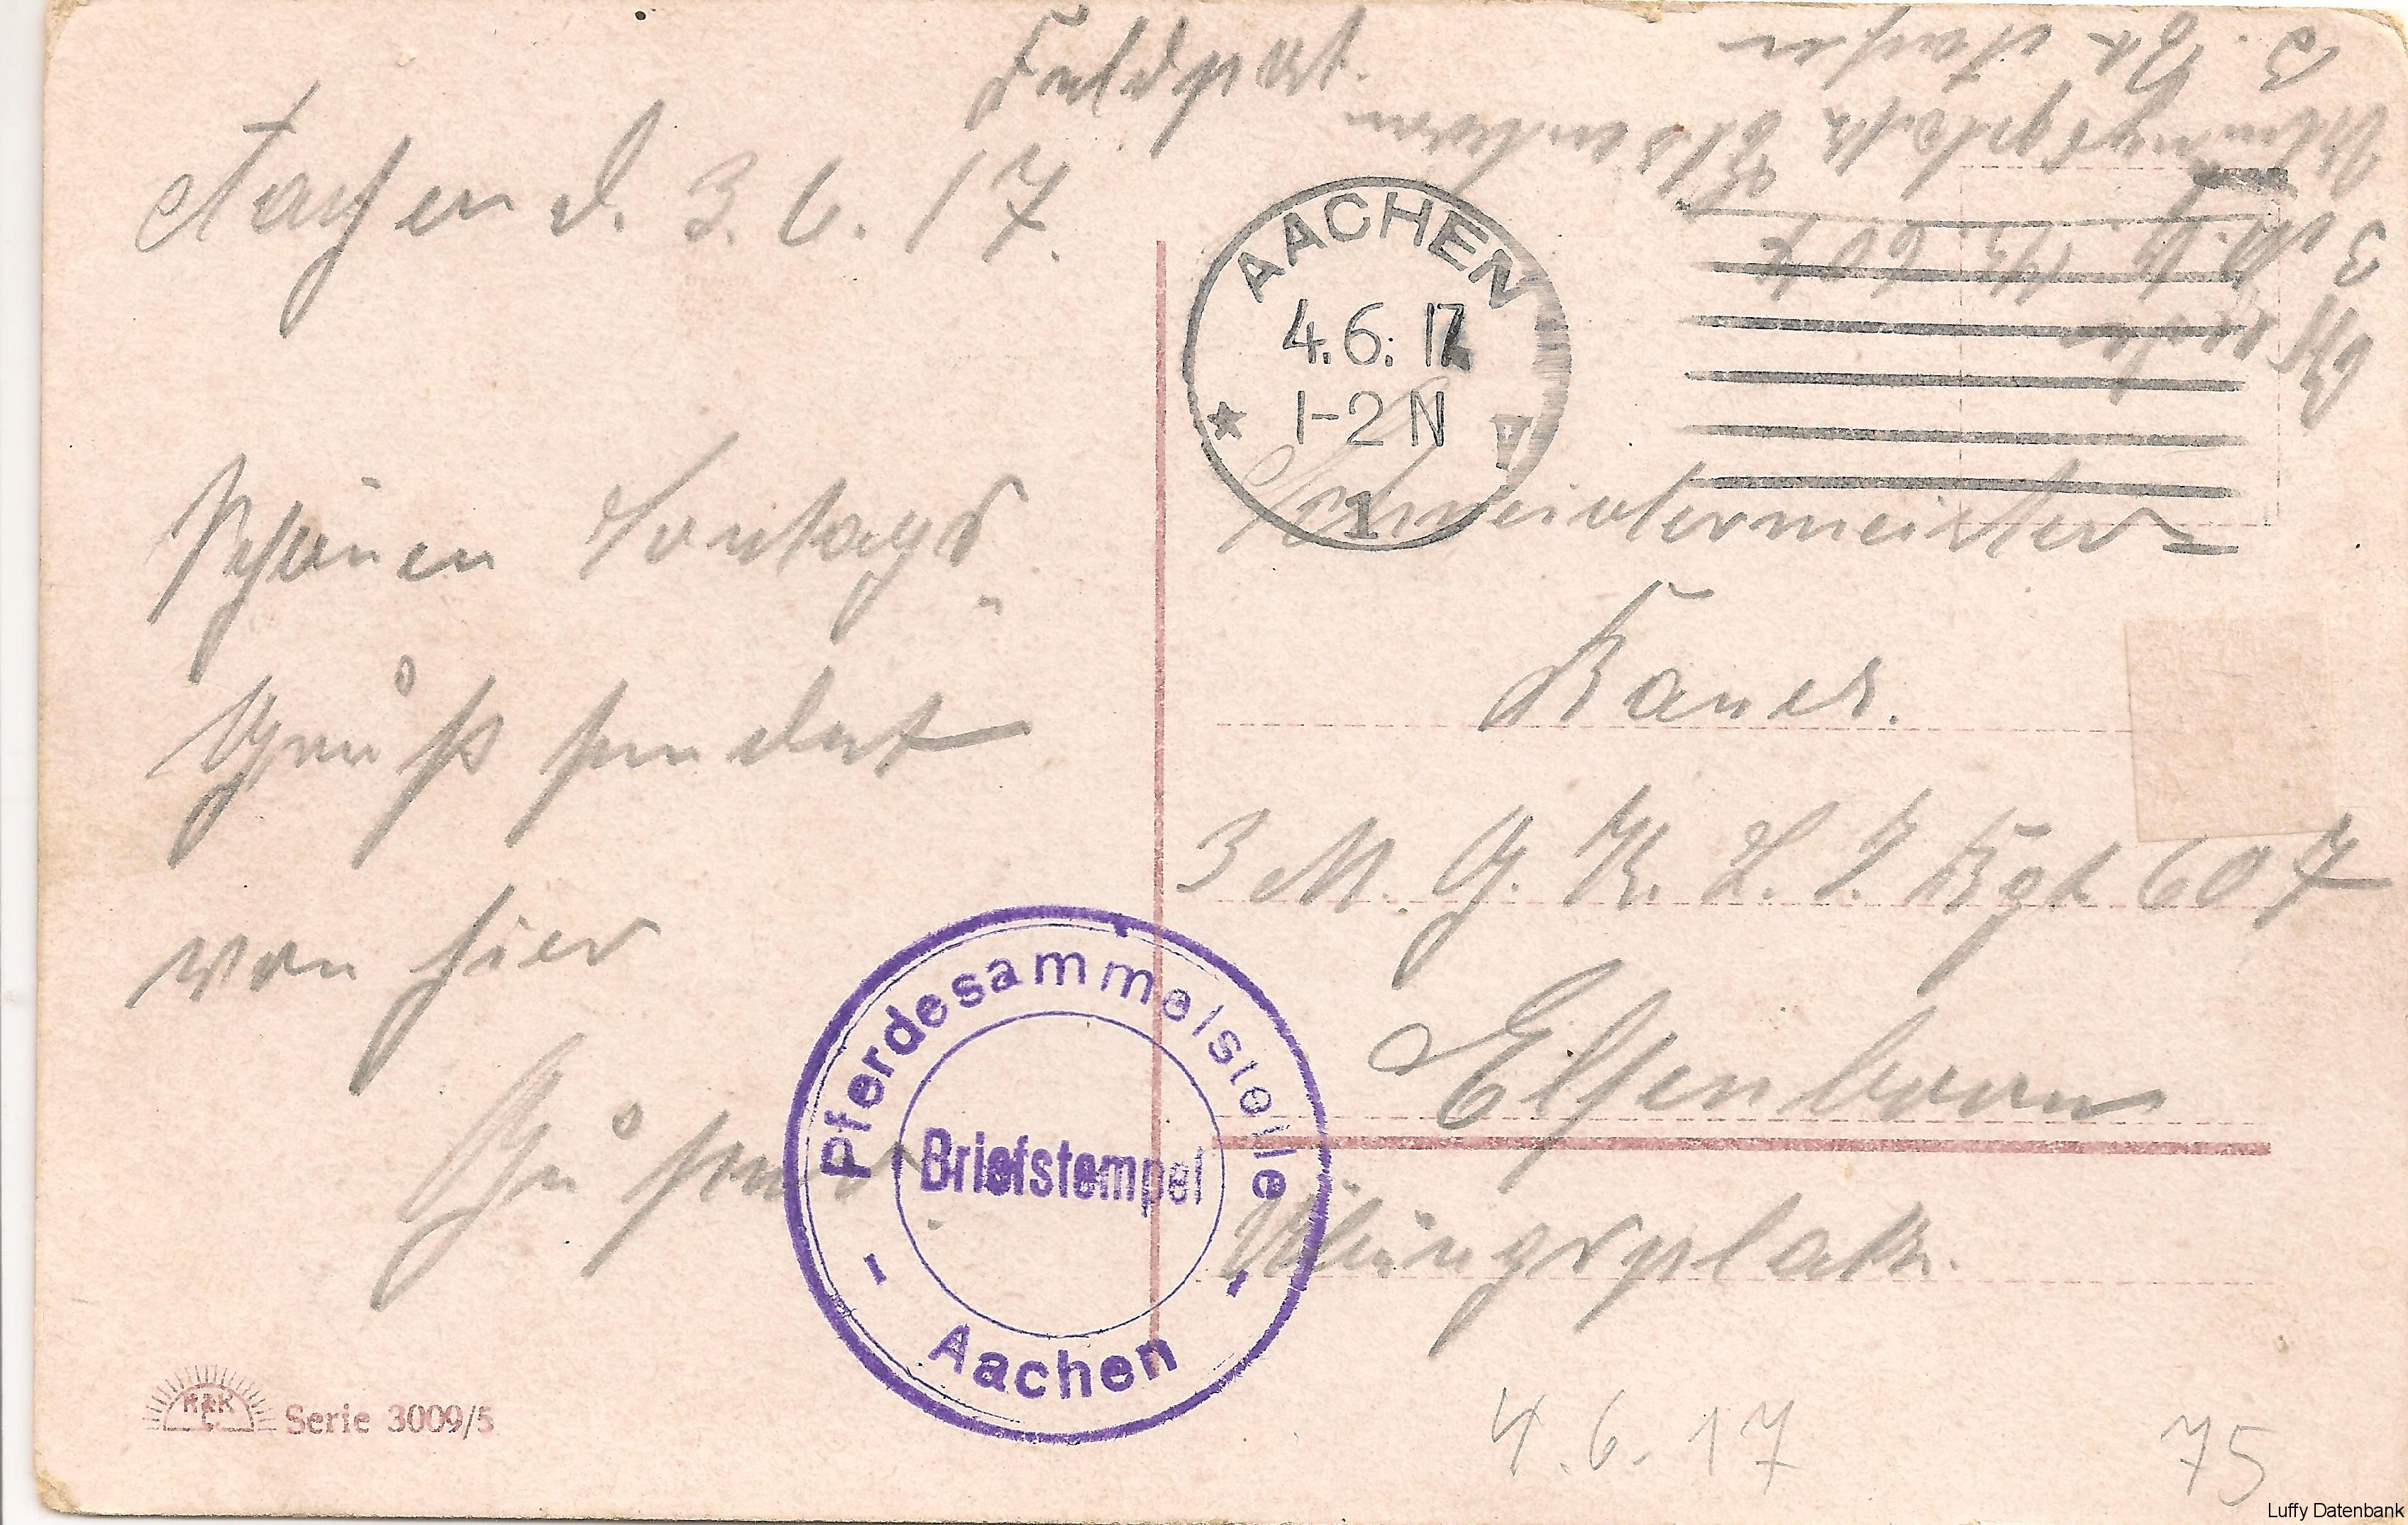 Feldpost.
Aachen d. 3. 6. 17.
Schönen Sontags
Gruß sendet
von hier
AACHEN
4.6.17
1-2 N
1
Schneidermeister
3 M. G. K. L. I. Rgt 607
Elsenborn
Übungsplatz.
Pferdesammelstelle
Briefstempel
Aachen
M&K
Serie 3009/5
4.6.17
75
Luffy Datenbank